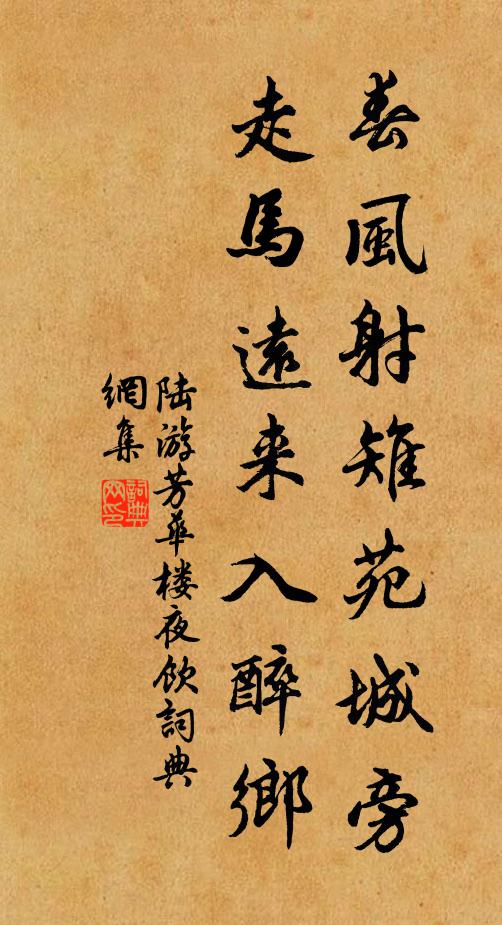 春風射雉苑城旁
走馬遠来入醉鄉
陆游芳華楼夜飲詞典
網集
詞典
网印